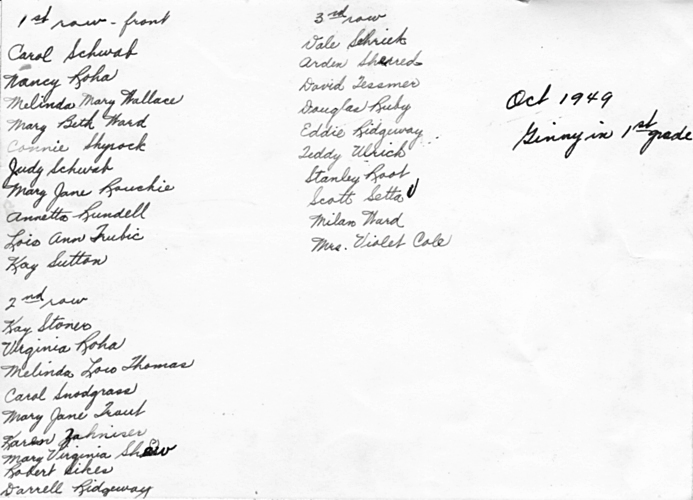 1st row - front
Carol Schwab
Nancy Roha
Melinda Mary Wallace
Mary Beth Ward
Connie Shyrock
Judy Schwab
Mary Jane Rouchie
Annetta Rundell
Lois Ann Trubic
Kay Sutton
2nd row
Kay Stoner
Virginia Roha
Melinda Lou Thomas
Carol Snodgrass
Mary Jane Traut
Karen Zahniser
Mary Virginia Shaw
Robert Sikes
Darrell Ridgeway
3rd row
Dale Schrick
Arden Sherred
David Tessmer
Douglas Ruby
Eddie Ridgeway
Teddy Ulrich
Stanley Root
Scott
Milan Ward
Mrs. Violet Cole
Oct 1949
Ginny in 1st grade